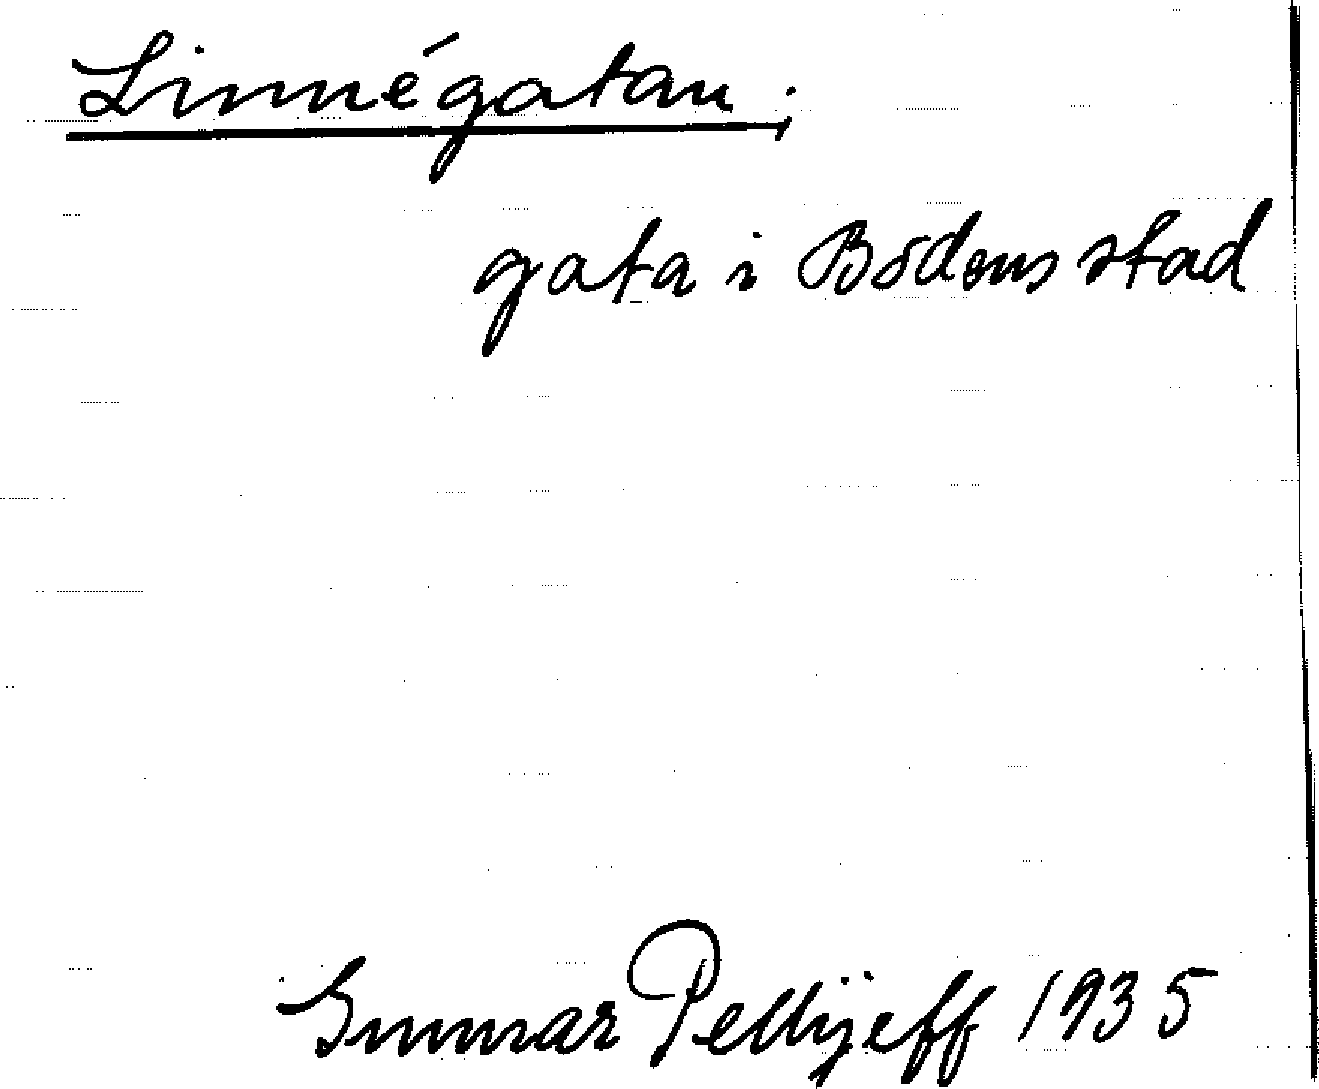 Linnégatan;
gata i Bodens stad
Gunnar Pellijeff 1935